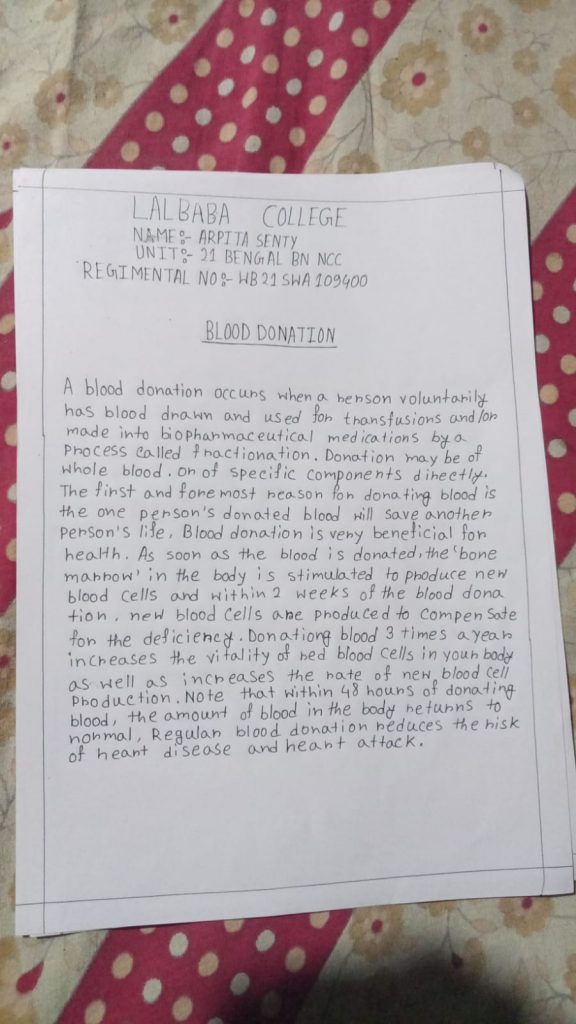 LALBABA COLLEGE
NAME:- ARPITA SENTY
UNIT:- 21 BENGAL BN NCC
REGIMENTAL NO:- WB21SWA109400
BLOOD DONATION
A blood donation occurs when a person voluntarily
has blood drawn and used for transfusions and/or
made into biopharmaceutical medications by a
process called fractionation. Donation may be of
whole blood. or of specific components directly.
The first and foremost reason for donating blood is
the one person's donated blood will save another
person's life, Blood donation is very beneficial for
health. As soon as the blood is donated, the 'bone
marrow' in the body is stimulated to produce new
blood cells and within 2 weeks of the blood dona
tion, new blood cells are produced to compensate
for the deficiency. Donationg blood 3 times a year
increases the vitality of red blood cells in your body
as well as increases the rate of new blood cell
production. Note that within 48 hours of donating
blood, the amount of blood in the body returns to
normal, Regular blood donation reduces the risk
of heart disease and heart attack.